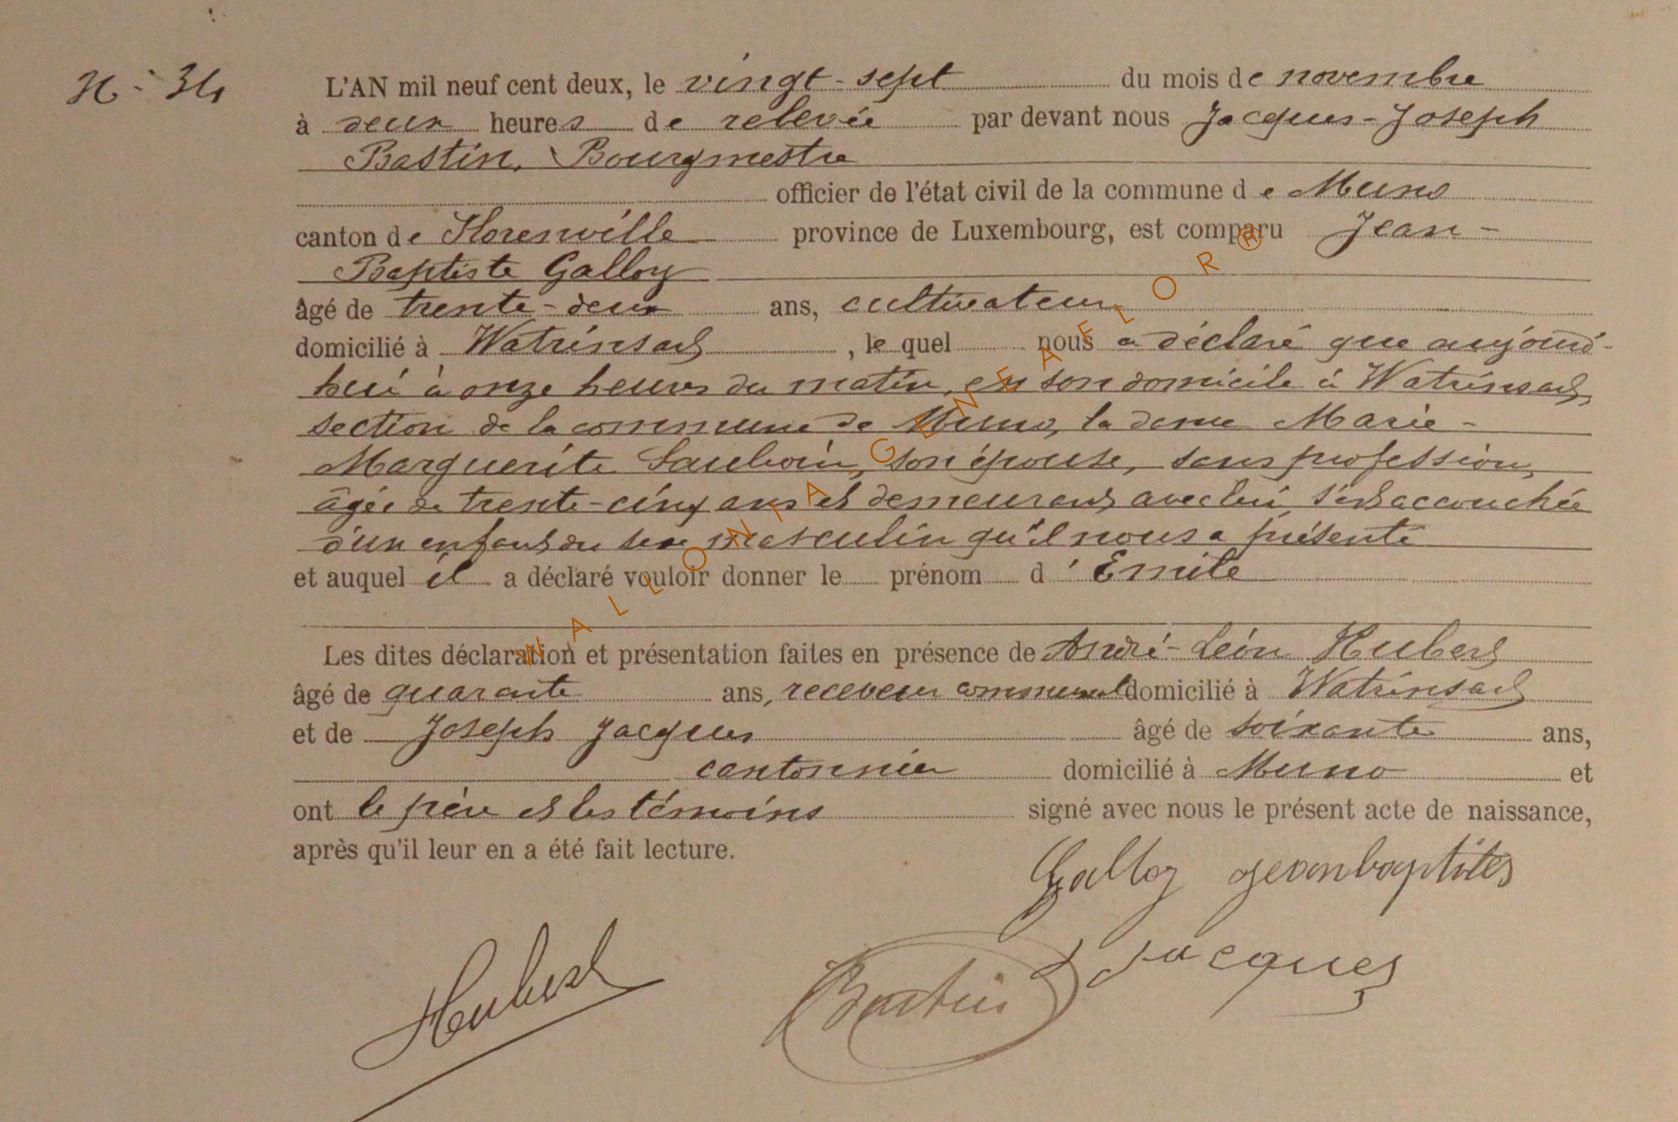 N° 34
L'AN mil neuf cent deux, le vingt-sept du mois de novembre
à deux heures de relevée par devant nous Jacques-Joseph
Bastin, Bourgmestre
officier de l'état civil de la commune de Muno
canton de Florenville province de Luxembourg, est comparu Jean-
Baptiste Galloy
âgé de trente-deux ans, cultivateur
domicilié à Watrinsart, le quel nous a déclaré que aujourd'-
hui à onze heures du matin, en son domicile à Watrinsart,
section de la commune de Muno, la dame Marie-
Marguerite son épouse, sans profession,
âgée de trente-cinq ans et demeurant avec lui, s'est accouchée
d'un enfant du sexe masculin qu'il nous a présenté
et auquel il a déclaré vouloir donner le prénom d'Emile
Les dites déclaration et présentation faites en présence de André-Léon Hubert
âgé de quarante ans, receveur communal domicilié à Watrinsart
et de Joseph Jacques âgé de soixante ans,
cantonnier domicilié à Muno et
ont le père et les témoins signé avec nous le présent acte de naissance,
après qu'il leur en a été fait lecture.
Galloy jeanbaptites
J Jacques
Hubert Bastin
WALLONIA GENEAFLOR®